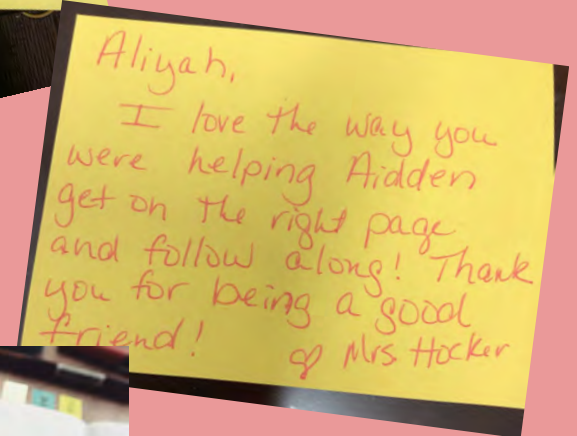 Aliyah,
I love the way you
were helping Aidden
get on the right page
and follow along! Thank
you for being a good
friend!
♡ Mrs Hocker